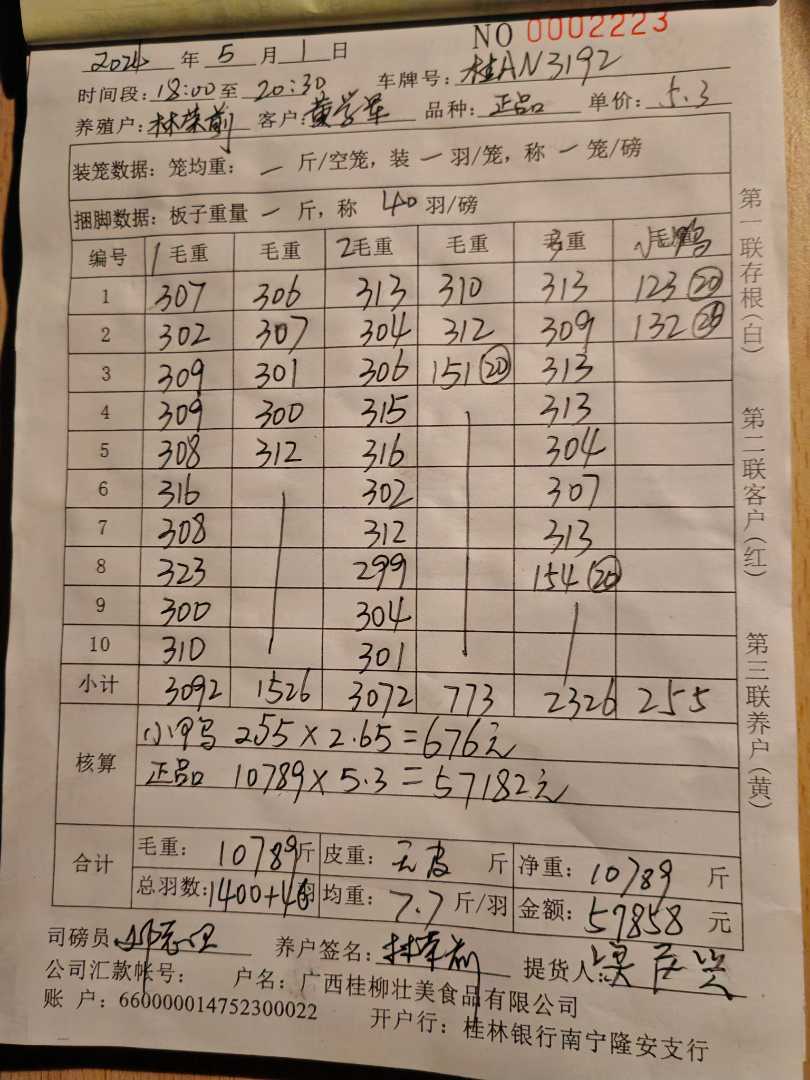 NO 0002223
2024 年 5 月 1 日
时间段: 18:00 至 20:30 车牌号: 桂AN3192
养殖户: 林荣前 客户: 黄学军 品种: 正品 单价: 5.3
装笼数据: 笼均重: 一 斤/空笼, 装 一 羽/笼, 称 一 笼/磅
捆脚数据: 板子重量 一 斤, 称 40 羽/磅
编号 1毛重 毛重 2毛重 毛重 3重 小鸭
1 307 306 313 310 313 123 20
2 302 307 304 312 309 132
3 309 301 306 151 20 313
4 309 300 315 313
5 308 312 316 304
6 316 302 307
7 308 312 313
8 323 299 154 20
9 300 304
10 310 301
小计 3092 1526 3072 773 2326 255
核算 小鸭 255×2.65=676元
正品 10789×5.3=57182元
合计 毛重: 10789斤 皮重: 无皮 斤 净重: 10789 斤
总羽数: 1400+40羽 均重: 7.7 斤/羽 金额: 57858 元
司磅员 养户签名: 林荣前 提货人:
公司汇款帐号: 户名: 广西桂柳壮美食品有限公司
账 户: 660000014752300022 开户行: 桂林银行南宁隆安支行
第一联存根(白) 第二联客户(红) 第三联养户(黄)